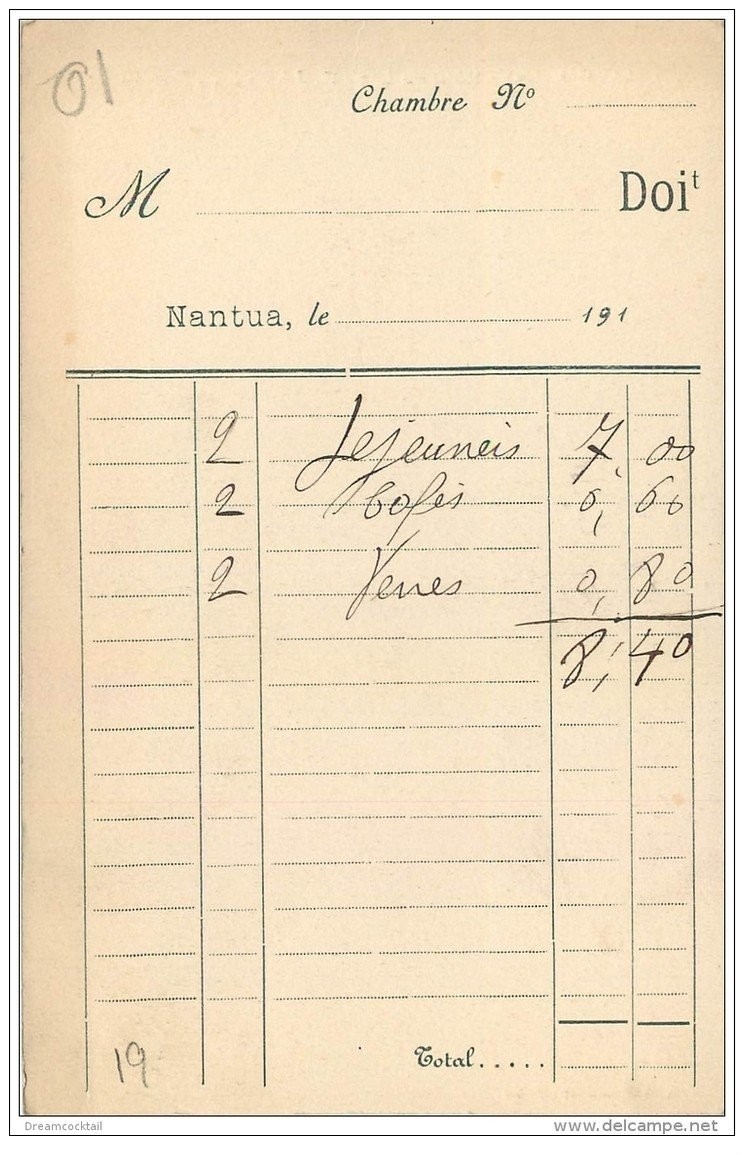 01
Chambre Nº
M Doit
Nantua, le 191
2 Dejeuneis 7,00
2 Cafés 0,60
2 Verres 0,80
8,40
Total.....
19
Dreamcocktail
delcampe.net